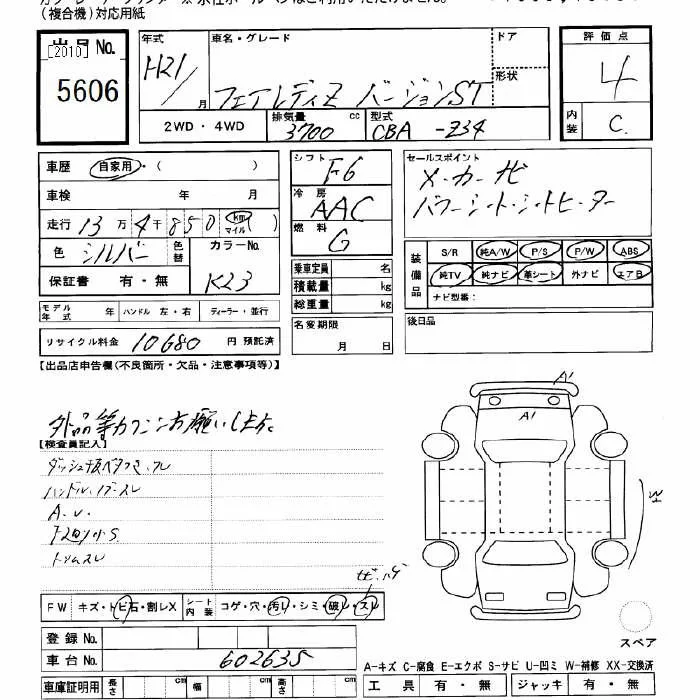 (複合機)対応用紙
出品No.
[2010]
5606
年式
H21/
月
車名・グレード
フェアレディZ バージョンST
ドア
形状
2WD・4WD
排気量
3700
cc
型式
CBA -Z34
評価点
4
内装
C.
車歴 自家用・( )
車検 年 月
走行 13万4千850 km マイル
色 シルバー
色替
カラーNo.
K23
保証書 有・無
モデル年式 年 ハンドル 左・右 ディーラー・並行
リサイクル料金 10680 円 預託済
シフト F6
冷房 AAC
燃料 G
乗車定員 名
積載量 kg
総重量 kg
名変期限
月 日
セールスポイント
メーカーナビ
パワーシート・シートヒーター
装備品
S/R 純A/W P/S P/W ABS
純TV 純ナビ 革シート 外ナビ エアB
ナビ型番:
後日品
【出品店申告欄(不良箇所・欠品・注意事項等)】
【検査員記入】
ハンドル、ノブスレ
トリムスレ
A1
A1
W
FW キズ・トビ石・割レX
シート内装 コゲ・穴・汚レ・シミ・破レ・スレ
登録No.
車台No. 602635
車庫証明用 長さ cm 幅 cm 高さ cm
スペア
A-キズ C-腐食 E-エクボ S-サビ U-凹ミ W-補修 XX-交換済
工具 有・無 ジャッキ 有・無